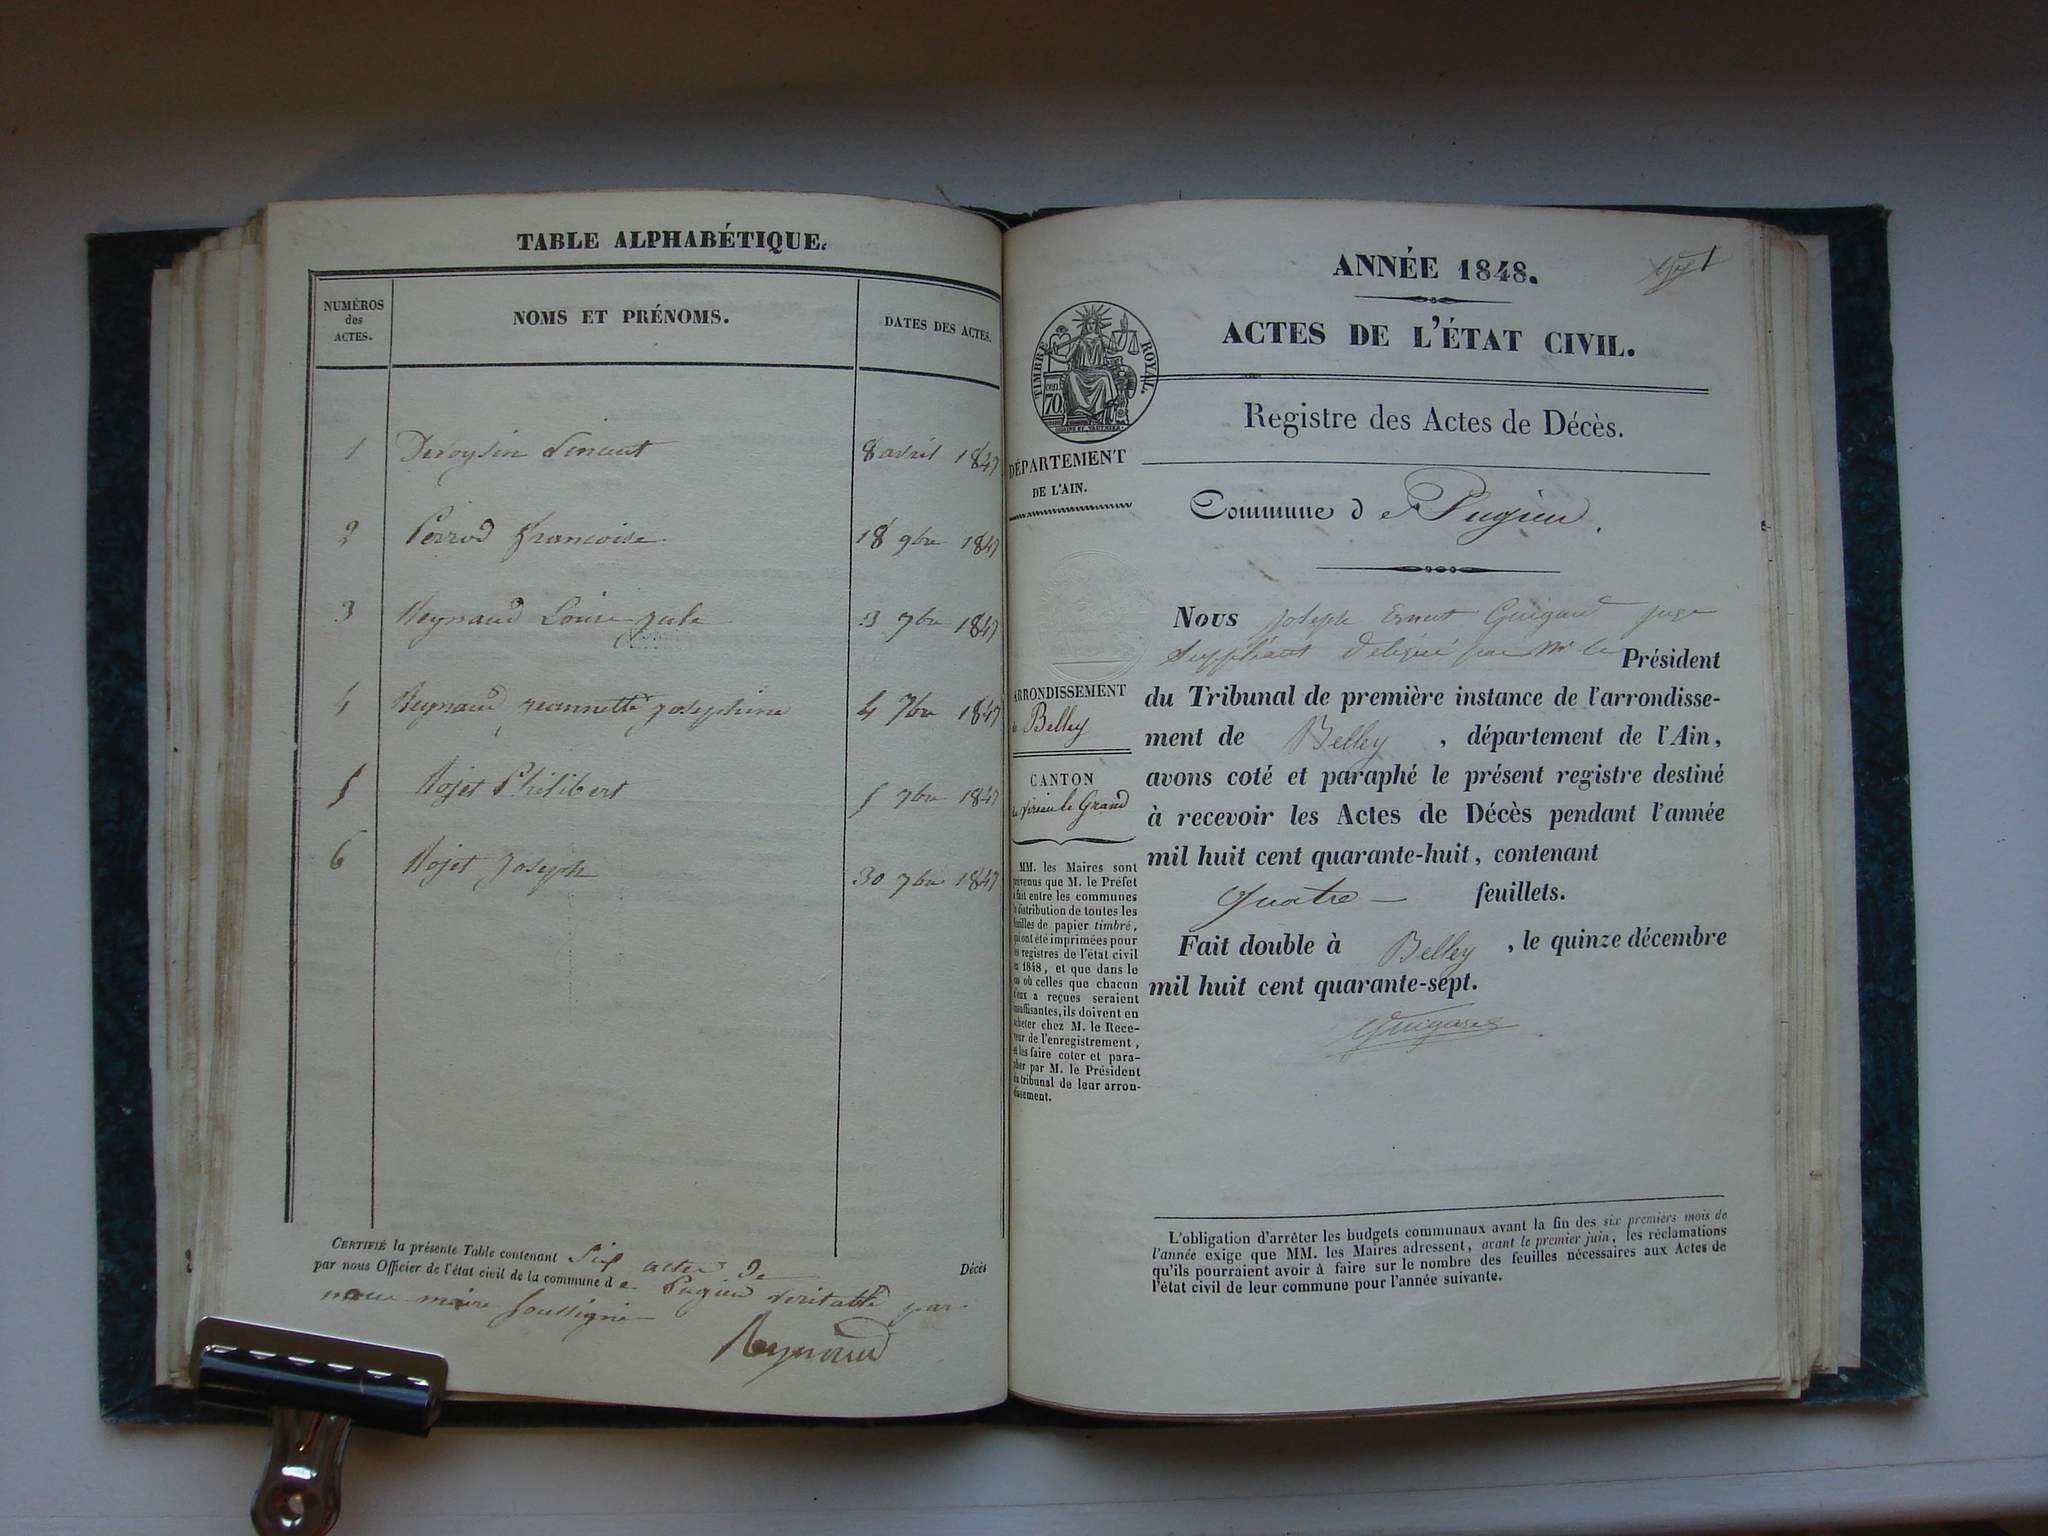 TABLE ALPHABÉTIQUE.
NUMÉROS des ACTES.
NOMS ET PRÉNOMS.
DATES DES ACTES.
1 Vincent 8 avril 1847
2 Perrod francoise 18 9bre 1847
3 Reynaud Louise Julie 3 7bre 1847
4 Reynaud jeannette josephine 4 7bre 1847
5 Rojet Philibert 5 7bre 1847
6 Rojet Joseph 30 7bre 1847
CERTIFIÉ la présente Table contenant six actes de Décès
par nous Officier de l'état civil de la commune de Pugieu véritable par
nous maire soussigné
Reynaud
ANNÉE 1848.
ACTES DE L'ÉTAT CIVIL.
TIMBRE ROYAL.
70
Registre des Actes de Décès.
DÉPARTEMENT
DE L'AIN.
Commune de Pugieu.
ARRONDISSEMENT
de Belley
CANTON
de Virieu le Grand
MM. les Maires sont
prévenus que M. le Préfet
a fait entre les communes
la distribution de toutes les
feuilles de papier timbré,
qui ont été imprimées pour
les registres de l'état civil
en 1848, et que dans le
cas où celles que chacun
d'eux a reçues seraient
insuffisantes, ils doivent en
acheter chez M. le Rece-
veur de l'enregistrement,
et les faire coter et para-
pher par M. le Président
du tribunal de leur arron-
dissement.
Nous Joseph Ernest Guigard juge
Suppléant délégué par Mr le Président
du Tribunal de première instance de l'arrondisse-
ment de Belley, département de l'Ain,
avons coté et paraphé le présent registre destiné
à recevoir les Actes de Décès pendant l'année
mil huit cent quarante-huit, contenant
quatre — feuillets.
Fait double à Belley, le quinze décembre
mil huit cent quarante-sept.
Guigard
L'obligation d'arrêter les budgets communaux avant la fin des six premiers mois de
l'année exige que MM. les Maires adressent, avant le premier juin, les réclamations
qu'ils pourraient avoir à faire sur le nombre des feuilles nécessaires aux Actes de
l'état civil de leur commune pour l'année suivante.